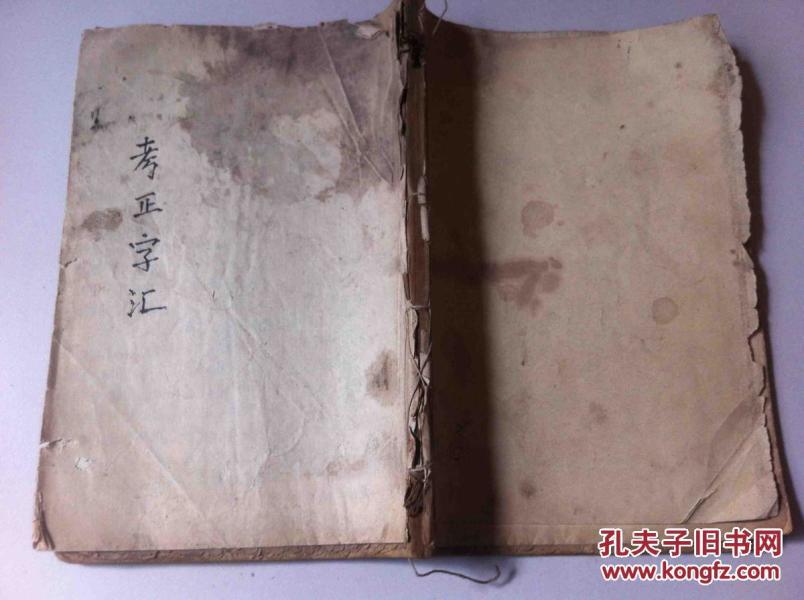 考正字汇
孔夫子旧书网
www.kongfz.com